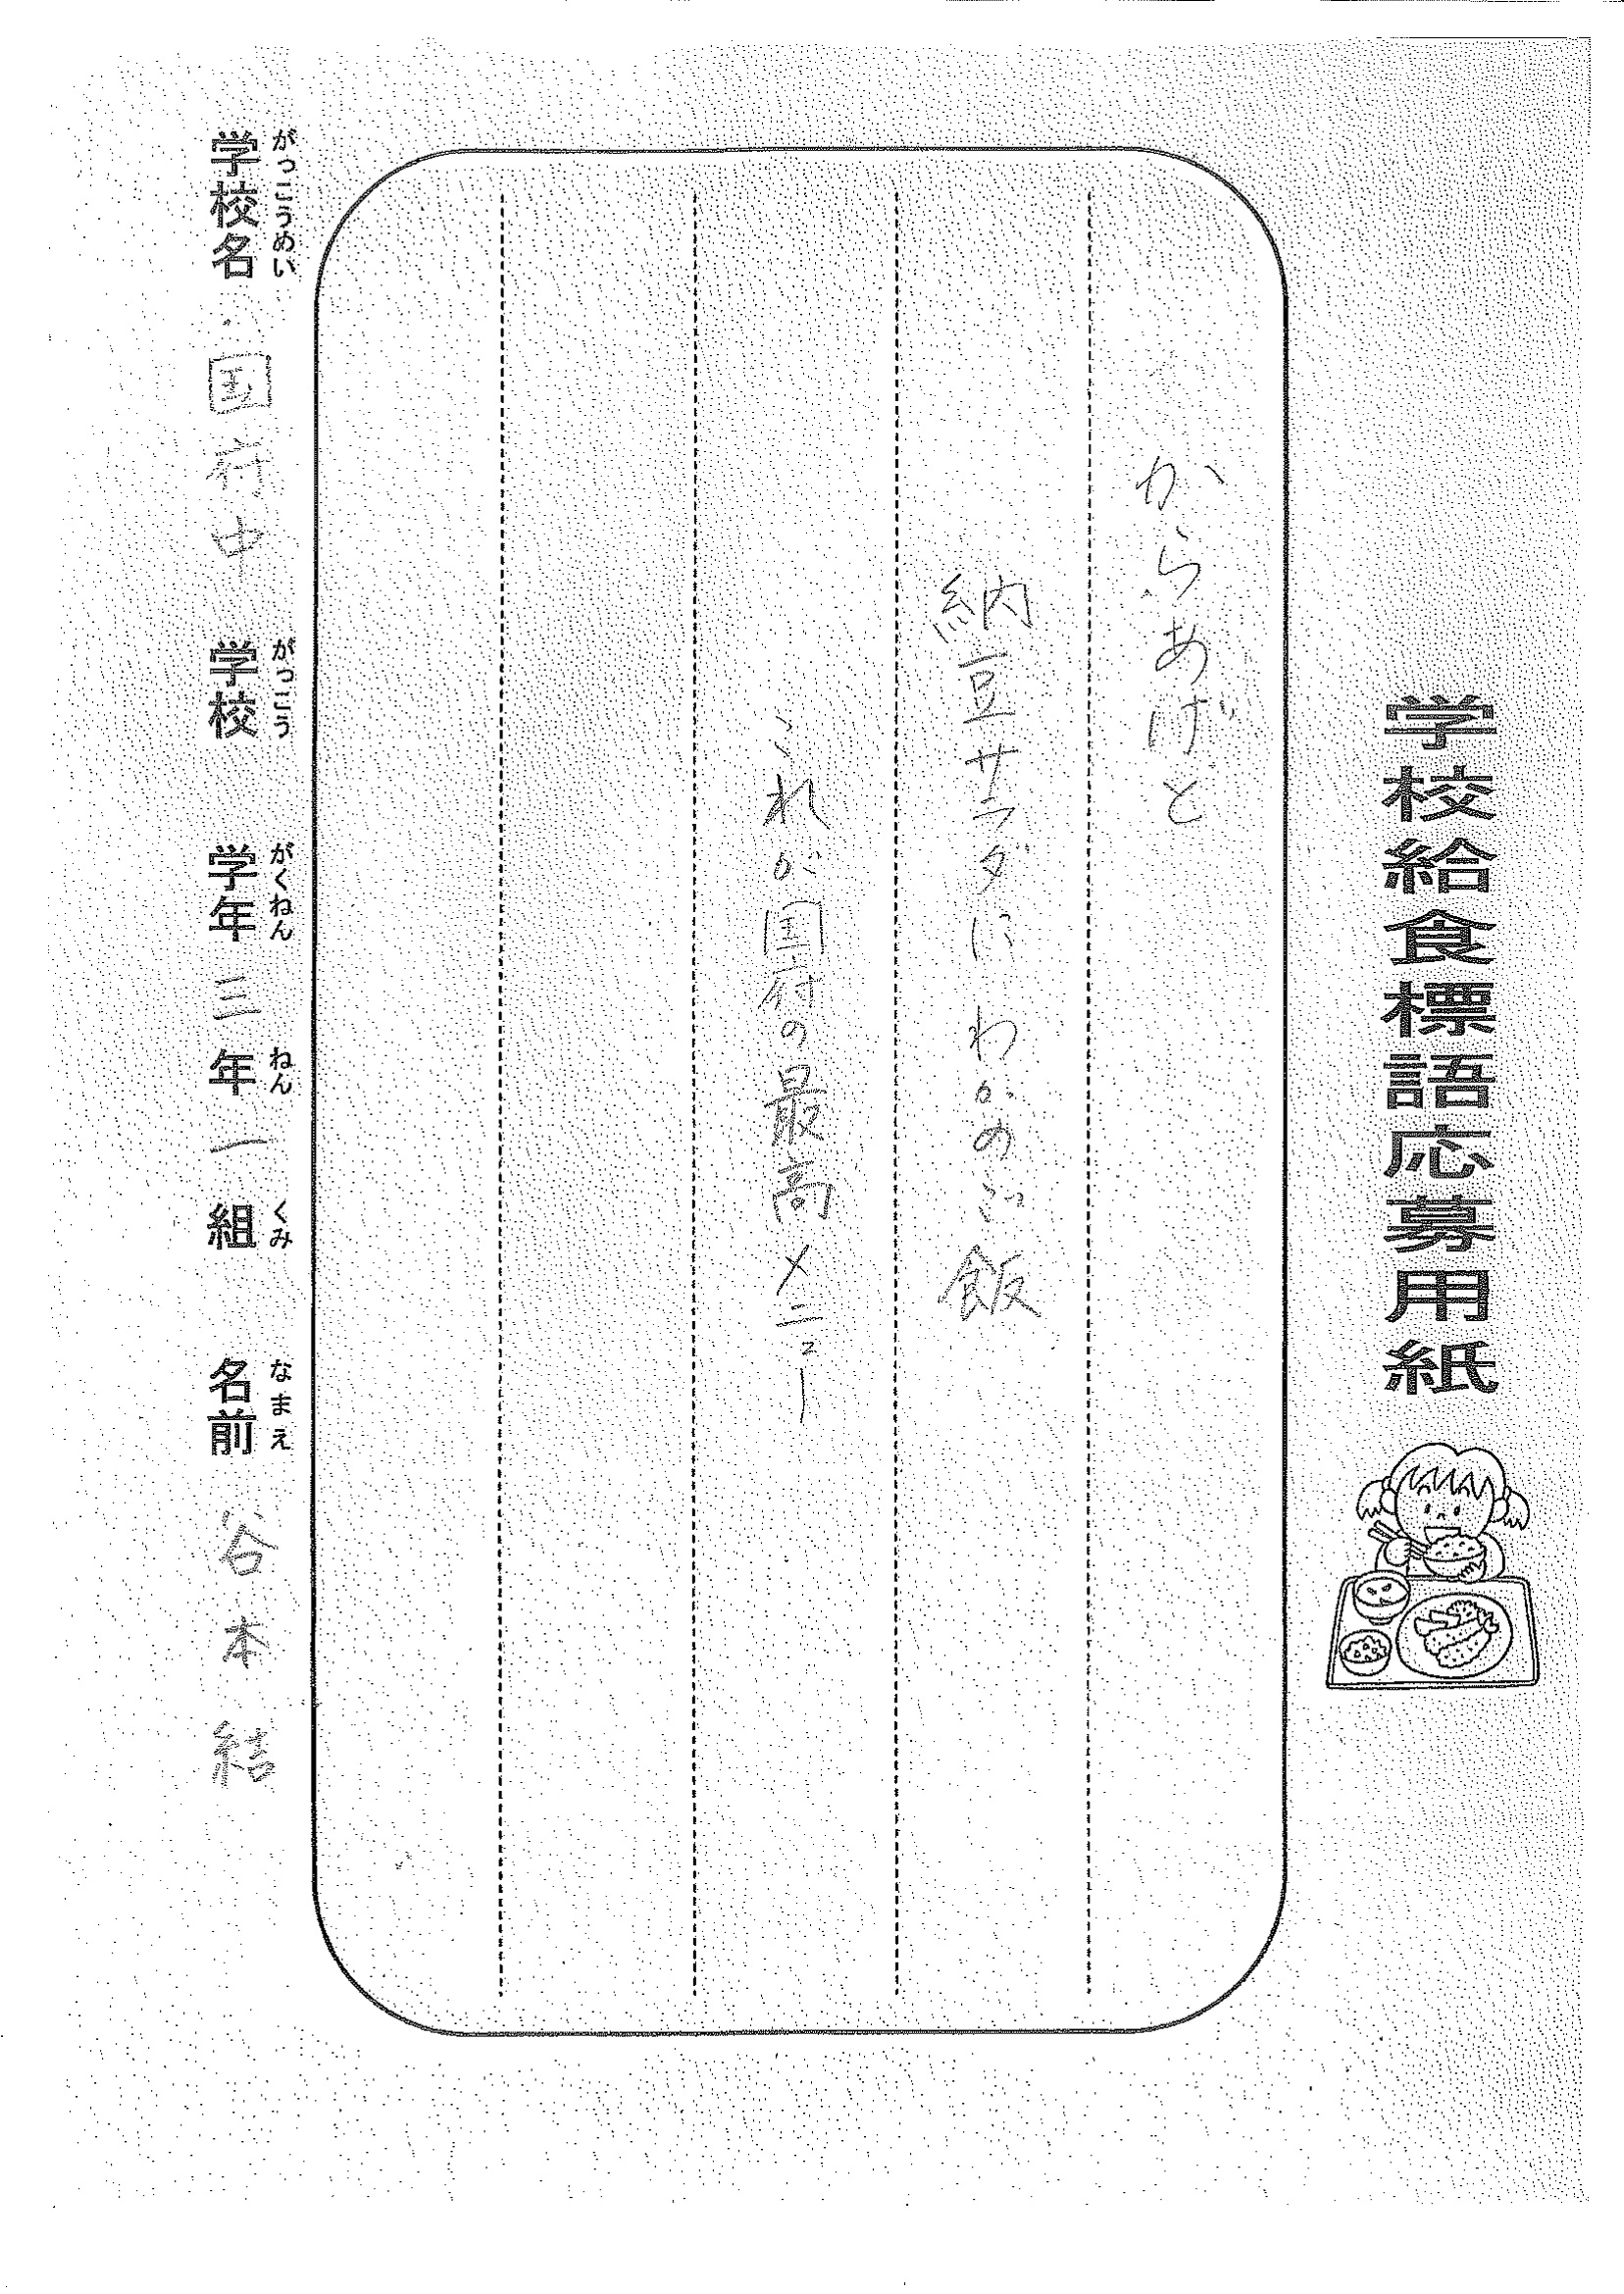 学校給食標語応募用紙
からあげと
納豆サラダにわかめご飯
これが国府の最高メニュー
がっこうめい がっこう がくねん ねん くみ なまえ
学校名 国府中 学校 学年 三 年 一 組 名前 谷本結